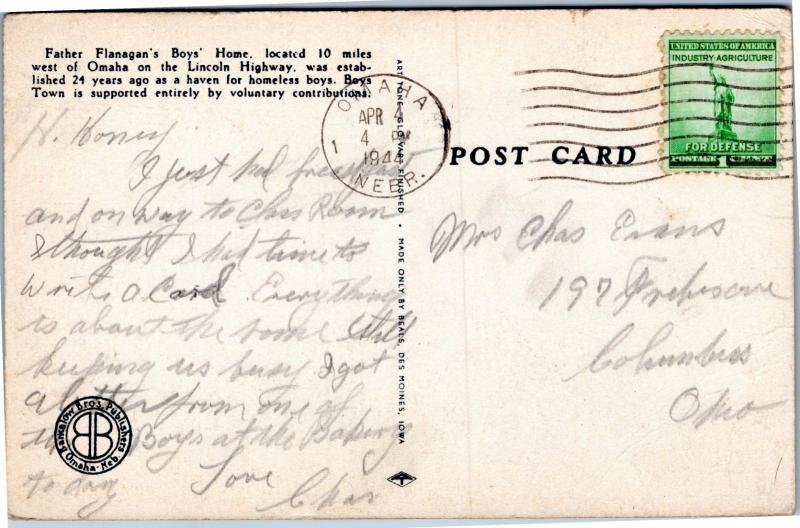 Father Flanagan's Boys' Home, located 10 miles
west of Omaha on the Lincoln Highway, was estab-
lished 24 years ago as a haven for homeless boys. Boys
Town is supported entirely by voluntary contributions.
H. Honey
I just had breakfast
and on way to Class Room
I thought I had time to
write a Card. Everything
is about the same still
keeping us busy I got
a letter from one of
the Boys at the Bakery
to day
Love
Chas
Bangalow Bros. Publishers
BB
Omaha-Neb.
ART-TONE "GLO-VAR" FINISHED • MADE ONLY BY BEALS, DES MOINES, IOWA
OMAHA
APR 4
4 PM
1944
1
NEBR.
POST CARD
UNITED STATES OF AMERICA
INDUSTRY-AGRICULTURE
FOR DEFENSE
POSTAGE 1 CENTS
Mrs Chas Evans
197
Columbus
Ohio